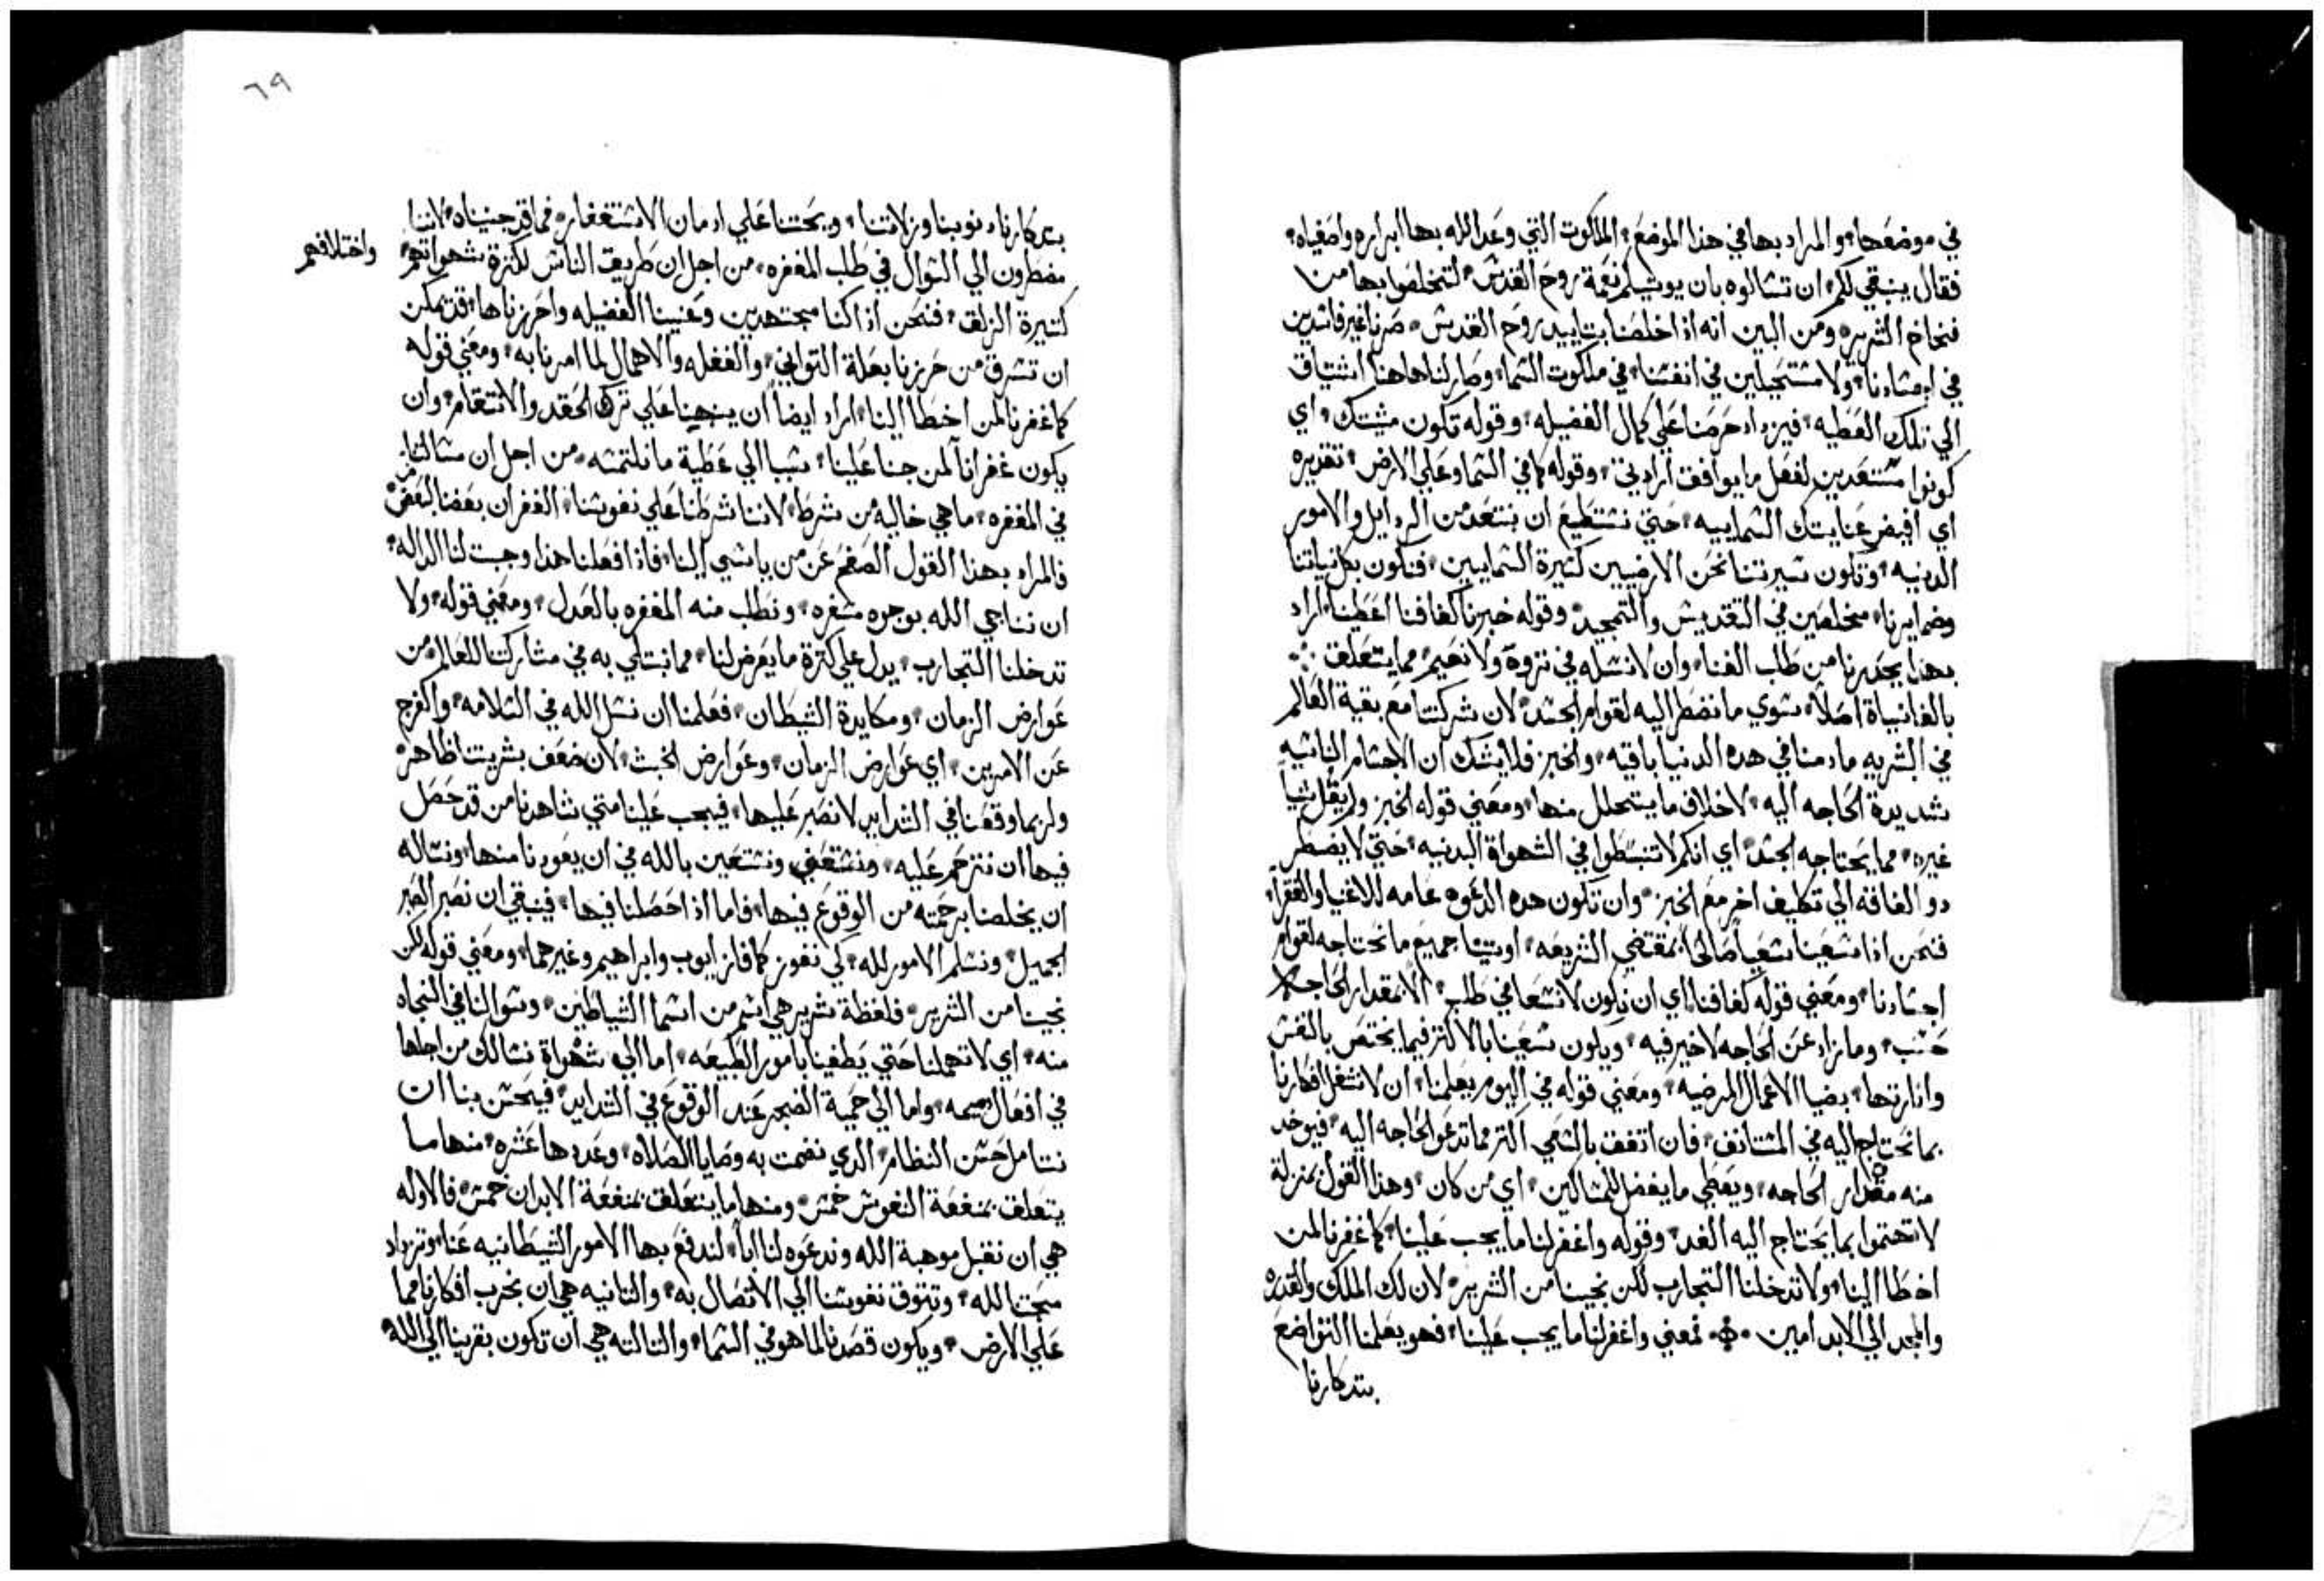 في موضعها والمراد بها في هذا الموضع الملكوت التي وعد الله بها ابراره واصفياه
فقال ينبغي لكم ان تسالوه بان يوتيكم نعمة روح القدس لتخلصوا بها من
فخاخ الشرير ومن البين انه اذا خلصنا بتاييد روح القدس صرنا غير فاسدين
في اجسادنا ولا مستحيلين في انفسنا في ملكوت السما وصار لنا هاهنا اشتياق
الي تلك العطيه فيزداد حرصنا علي كمال الفضيله وقوله تكون مشيتك اي
كونوا مستعدين لفعل ما يوافق ارادتي وقوله كما في السما وعلي الارض تقديره
اي افيض عنايتك السماييه حتي نستطيع ان نبتعد من الردايل والامور
الدينيه وتكون سيرتنا نحن الارضيين كسيرة السماييين فنكون بكل نياتنا
وضمايرنا مخلصين في التقديس والتمجيد وقوله خبزنا كفافنا اعطينا اراد
بهذا يحذرنا من طلب الغنا وان لا نسله في ثروة ولا نعيم مما يتعلق
بالفانياة اصلا سوي ما نضطر اليه لقوام الجسد لان شركتنا مع بقية العالم
في البشريه ما دمنا في هده الدنيا باقيه والخبز فلا يشك ان الاجسام الناشيه
شديدة الحاجه اليه لاخلاف ما يتحلل منها ومعني قوله الخبز ولم يقل شيا
غيره مما يحتاجه الجسد اي انكم لا تنبسطوا في الشهواة البدنيه حتي لا يضطر
دو الفاقه الي تكليف اخر مع الخبز وان تكون هده الدعوه عامه للاغنيا والفقرا
فنحن اذا سعينا سعيا صالحا بمقتضي الشريعه اوتينا جميع ما نحتاجه لقوام
اجسادنا ومعني قوله كفافنا اي ان نكون لا نسعا في طلب الا بمقدار الحاجه
حسب وما زاد عن الحاجه لا خير فيه ويكون سعينا بالاكثر فيما يختص بالنفس
وانارتها بضيا الاعمال المرضيه ومعني قوله في اليوم يعلمنا ان لا نشغل افكارنا
بما نحتاج اليه في المستانف فان اتفق بالسعي اكثر مما تدعو الحاجه اليه فيوخد
منه مقدار الحاجه ويعطي ما يفضل للمساكين اي من كان وهذا القول بمنزلة
لا تهتموا بما يحتاج اليه الغد وقوله واغفر لنا ما يجب علينا كما غفرنا لمن
اخطا الينا ولا تدخلنا التجارب لكن نجينا من الشرير لان لك الملك والقدره
والمجد الي الابد امين فمعني واغفر لنا ما يجب علينا فهو يعلمنا التواضع
بتدكارنا
٦٩
بتدكارنا دنوبنا وزلاتنا ويحتنا علي ادمان الاستغفار فما قد جنيناه لاننا
مضطرون الي السوال في طلب المغفره من اجل ان طريقت الناس لكثرة شهواتهم
واختلافهم
كثيرة الزلق فنحن اذا كنا مجتهدين وعنينا الفضيله واحرزناها قد يمكن
ان تسرق من حرزنا بعلة التواني والغفله والاهمال لما امرنا به ومعني قوله
كما غفرنا لمن اخطا الينا اراد ايضا ان ينهينا علي ترك الحقد والانتقام وان
يكون غفراننا لمن جنا علينا سببا الي عطية ما نلتمسه من اجل ان مسالتنا
في المغفره ما هي خاليه من شرط لاننا شرطنا علي نفوسنا الغفران بعضنا لبعض
فالمراد بهدا القول الصفح عن من ياسي الينا فاذا فعلنا هذا وجبت لنا الداله
ان نناجي الله بوجوه مسفره ونطلب منه المغفره بالعدل ومعني قوله ولا
تدخلنا التجارب يدل علي كثرة ما يعرض لنا مما نبتلي به في مشاركتنا للعالم من
عوارض الزمان ومكايدة الشيطان فعلمنا ان نسل الله في السلامه والفرج
عن الامرين اي عوارض الزمان وعوارض الخبث لان ضعف بشريتنا ظاهر
ولربما وقعنا في الشدايد لا نصبر عليها فيجب علينا متي شاهدنا من قد حصل
فيها ان نترحم عليه ونستعفي ونستعين بالله في ان يعودنا منها ونساله
ان يخلصنا برحمته من الوقوع فيها فاما اذا حصلنا فيها فينبغي ان نصبر الصبر
الجميل ونسلم الامور لله كي نفوز كما فاز ايوب وابراهيم وغيرهما ومعني قوله لكن
نجينا من الشرير فلفظة شرير هي اسم من اسما الشياطين وسوالنا في النجاه
منه اي لا تهملنا حتي يطغينا بامور الطبيعه اما الي شهواة نسالك من اجلها
في افعال واما الي حمية الضجر عند الوقوع في الشدايد فيحسن بنا ان
نتامل حسن النظام الدي نضمت به وصايا الصلاه وعددها عشره منها ما
يتعلق بمنفعة النفوس خمس ومنها ما يتعلق بمنفعة الابدان خمس فالاوله
هي ان نقبل موهبة الله وندعوه لنا ابا لندفع بها الامور الشيطانيه عنا وتزداد
محبتنا لله وتتوق نفوسنا الي الاتصال به والتانيه هي ان نخرب افكارنا مما
علي الارض ويكون قصدنا لما هو في السما والتالته هي ان تكون بقربنا الي الله